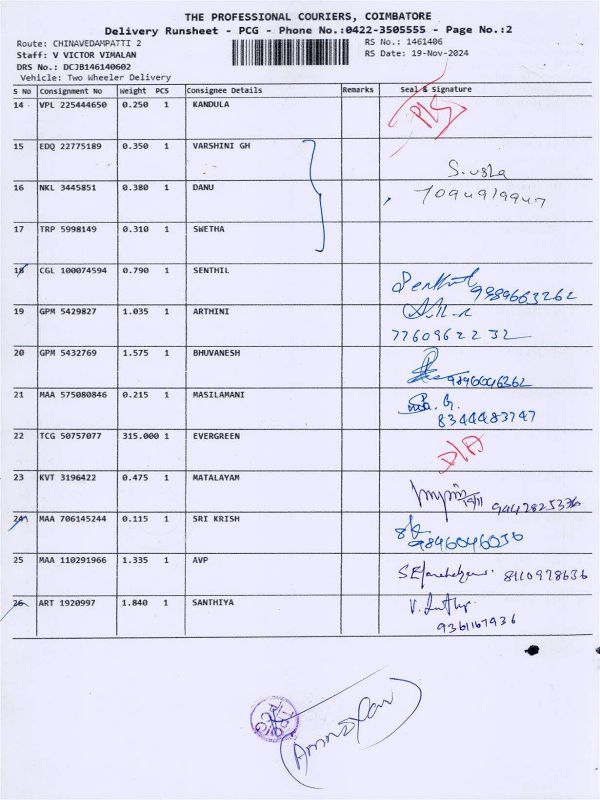 THE PROFESSIONAL COURIERS, COIMBATORE
Delivery Runsheet - PCG - Phone No.:0422-3505555 - Page No.:2
Route: CHINAVEDAMPATTI 2 RS No.: 1461406
Staff: V VICTOR VIMALAN RS Date: 19-Nov-2024
DRS No.: DCJB146140602
Vehicle: Two Wheeler Delivery
S No Consignment No Weight PCS Consignee Details Remarks Seal & Signature
14 VPL 225444650 0.250 1 KANDULA
15 EDQ 22775189 0.350 1 VARSHINI GH
S. usha
16 NKL 3445851 0.380 1 DANU
17 TRP 5998149 0.310 1 SWETHA
18 CGL 100074594 0.790 1 SENTHIL
9989663262
19 GPM 5429827 1.035 1 ARTHINI
7760962232
20 GPM 5432769 1.575 1 BHUVANESH
21 MAA 575080846 0.215 1 MASILAMANI
8344483747
22 TCG 50757077 315.000 1 EVERGREEN D/A
23 KVT 3196422 0.475 1 MATALAYAM
19/11 9442825376
24 MAA 706145244 0.115 1 SRI KRISH
9846046036
25 MAA 110291966 1.335 1 AVP
8110978636
26 ART 1920997 1.840 1 SANTHIYA
9361167936